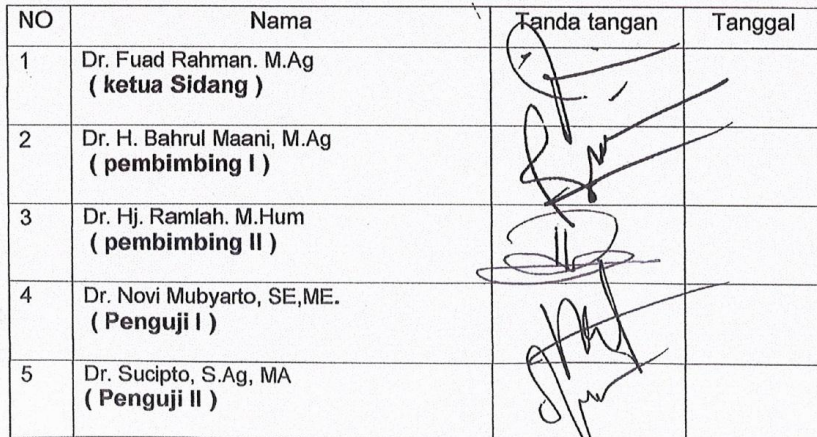 NO Nama Tanda tangan Tanggal
1 Dr. Fuad Rahman. M.Ag
( ketua Sidang )
2 Dr. H. Bahrul Maani, M.Ag
( pembimbing I )
3 Dr. Hj. Ramlah. M.Hum
( pembimbing II )
4 Dr. Novi Mubyarto, SE,ME.
( Penguji I )
5 Dr. Sucipto, S.Ag, MA
( Penguji II )